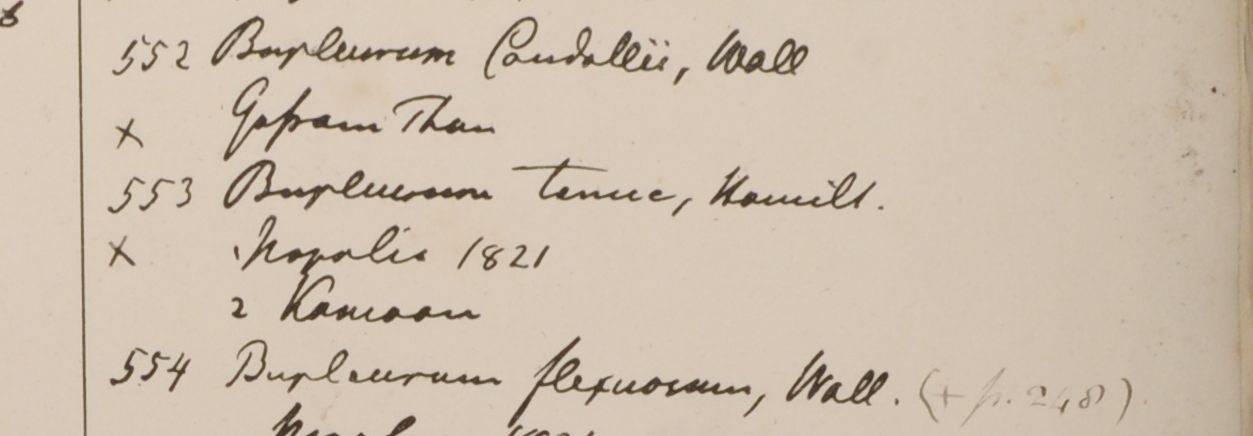 552 Bupleurum Candollii, Wall
x Gossam Than
553 Bupleurum tenue, Hamilt.
x Napalia 1821
2 Kamaon
554 Bupleurum flexuosum, Wall. (+ p. 248)
1821